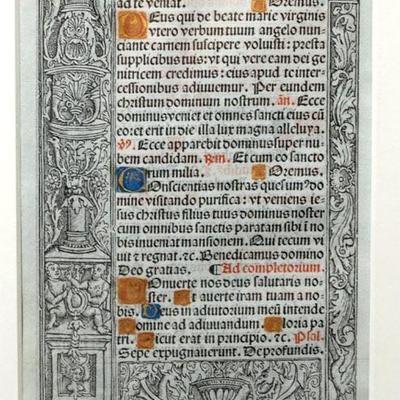 ad te veniat. Oremus.
Deus qui de beate marie virginis
vtero verbum tuum angelo nun-
ciante carnem suscipere voluisti: presta
supplicibus tuis: vt qui vere eam dei ge
nitricem credimus: eius apud te inter-
cessionibus adiuuemur. Per eundem
christum dominum nostrum. añ. Ecce
dominus veniet et omnes sancti eius cū
eo: et erit in die illa lux magna alleluya.
℣. Ecce apparebit dominus super nu-
bem candidam. Rñ. Et cum eo sancto
rum milia. Oremus.
Conscientias nostras quesum⁹ do
mine visitando purifica: vt veniens ie-
sus christus filius tuus dominus noster
cum omnibus sanctis paratam sibi ī no
bis inueniat mansionem. Qui tecum vi
uit et regnat. ⁊c. Benedicamus domino
Deo gratias. ¶ Ad completorium.
Conuerte nos deus salutaris no-
ster. Et auerte iram tuam a no-
bis. Deus in adiutorium meū intende
Domine ad adiuuandum. Gloria pa-
tri. Sicut erat in principio. ⁊c. Psal.
Sepe expugnauerunt. De profundis.